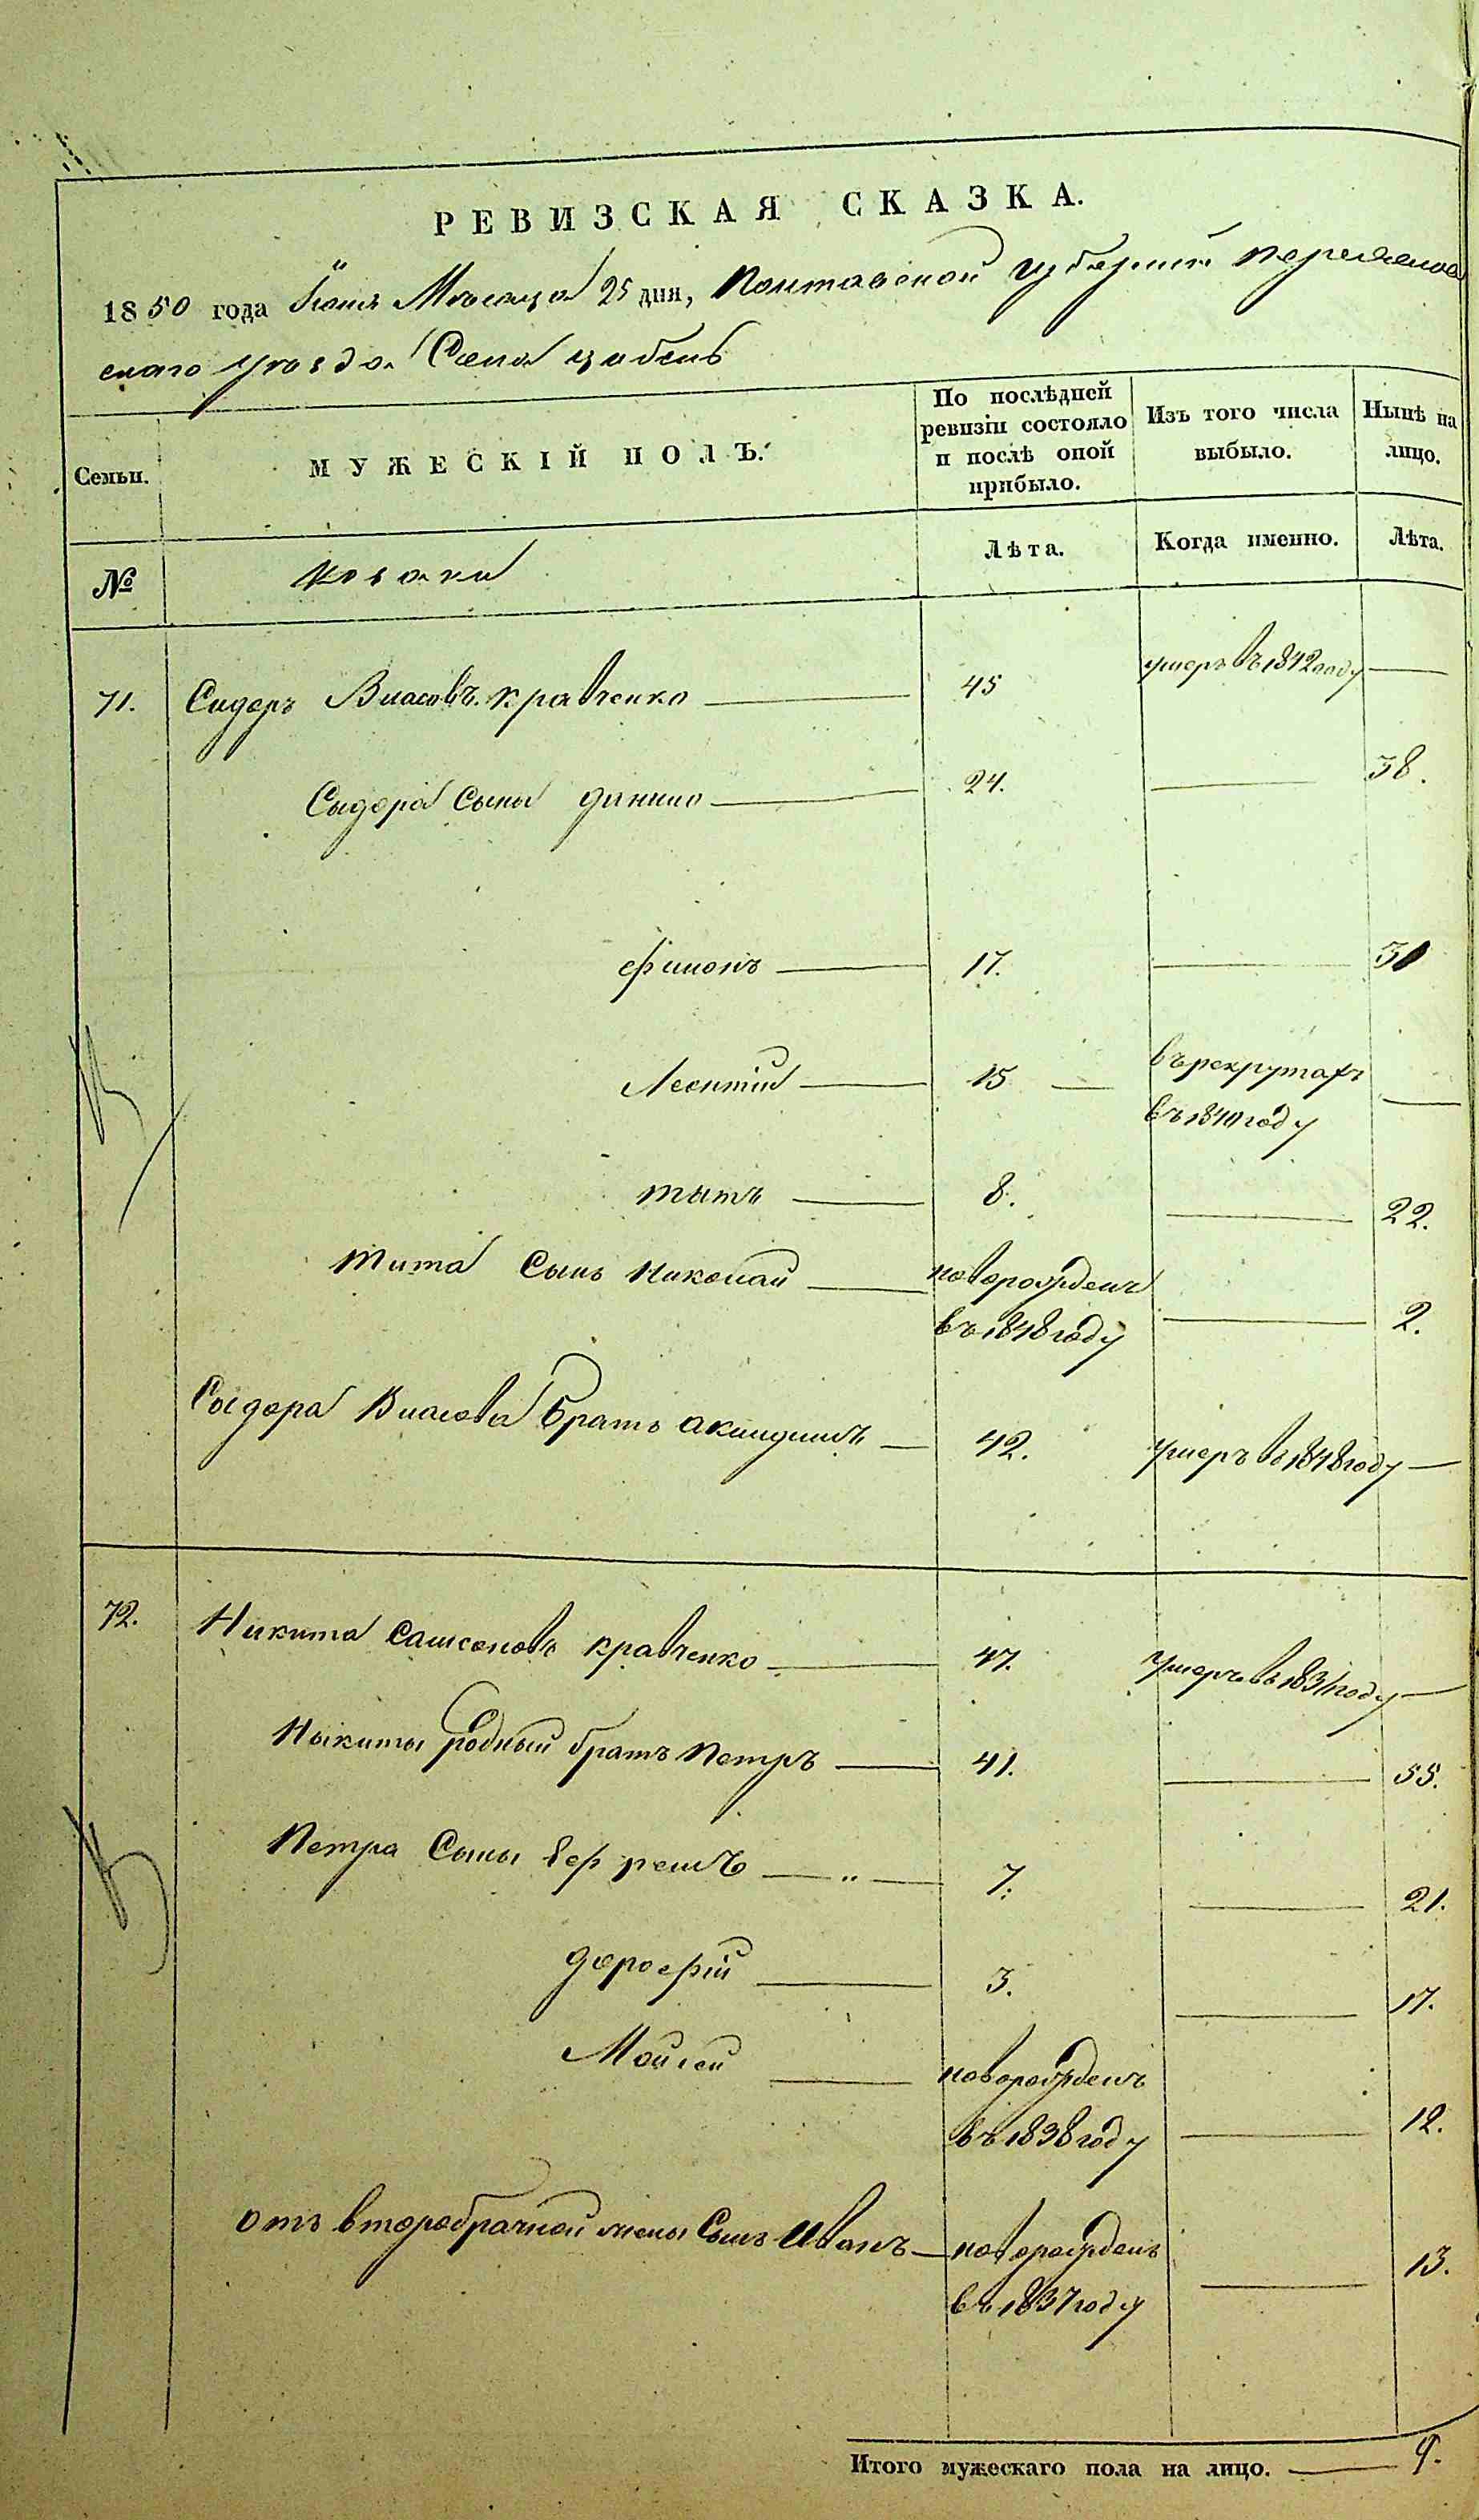 РЕВИЗСКАЯ СКАЗКА.
1850 года Іюня Мѣсяца 25 дня, Полтавской Губерніи Переяслов
скаго Уѣзда Села
Семьи.
МУЖЕСКІЙ ПОЛЪ.
По послѣдней
ревизіи состояло
и послѣ оной
прибыло.
Изъ того числа
выбыло.
Нынѣ на
лицо.
№
Козаки
Лѣта.
Когда именно.
Лѣта.
71. Сидоръ Власовъ Кравченко — 45 умеръ въ 1842 году —
Сыдора Сыны Данило — 24. — 38.
Филонъ — 17. — 30
Леонтій — 15 — въ рекрутахъ
въ 1840 году —
Тытъ — 8. — 22.
Тита Сынъ Николай — новорожденъ
въ 1848 году — 2.
Сыдора Власова братъ Акиндинъ — 42. умеръ въ 1848 году —
72. Никита Самсоновъ Кравченко — 47. Умеръ въ году —
Ныкиты родный братъ Петръ — 41. — 55.
Петра Сыны — „ — 7. — 21.
Дорофій — 3. — 17.
Моисей — новорожденъ
въ 1838 году — 12.
отъ второбрачной жены Сынъ Иванъ — новорожденъ
въ 1837 году — 13.
Итого мужескаго пола на лицо. — 9.